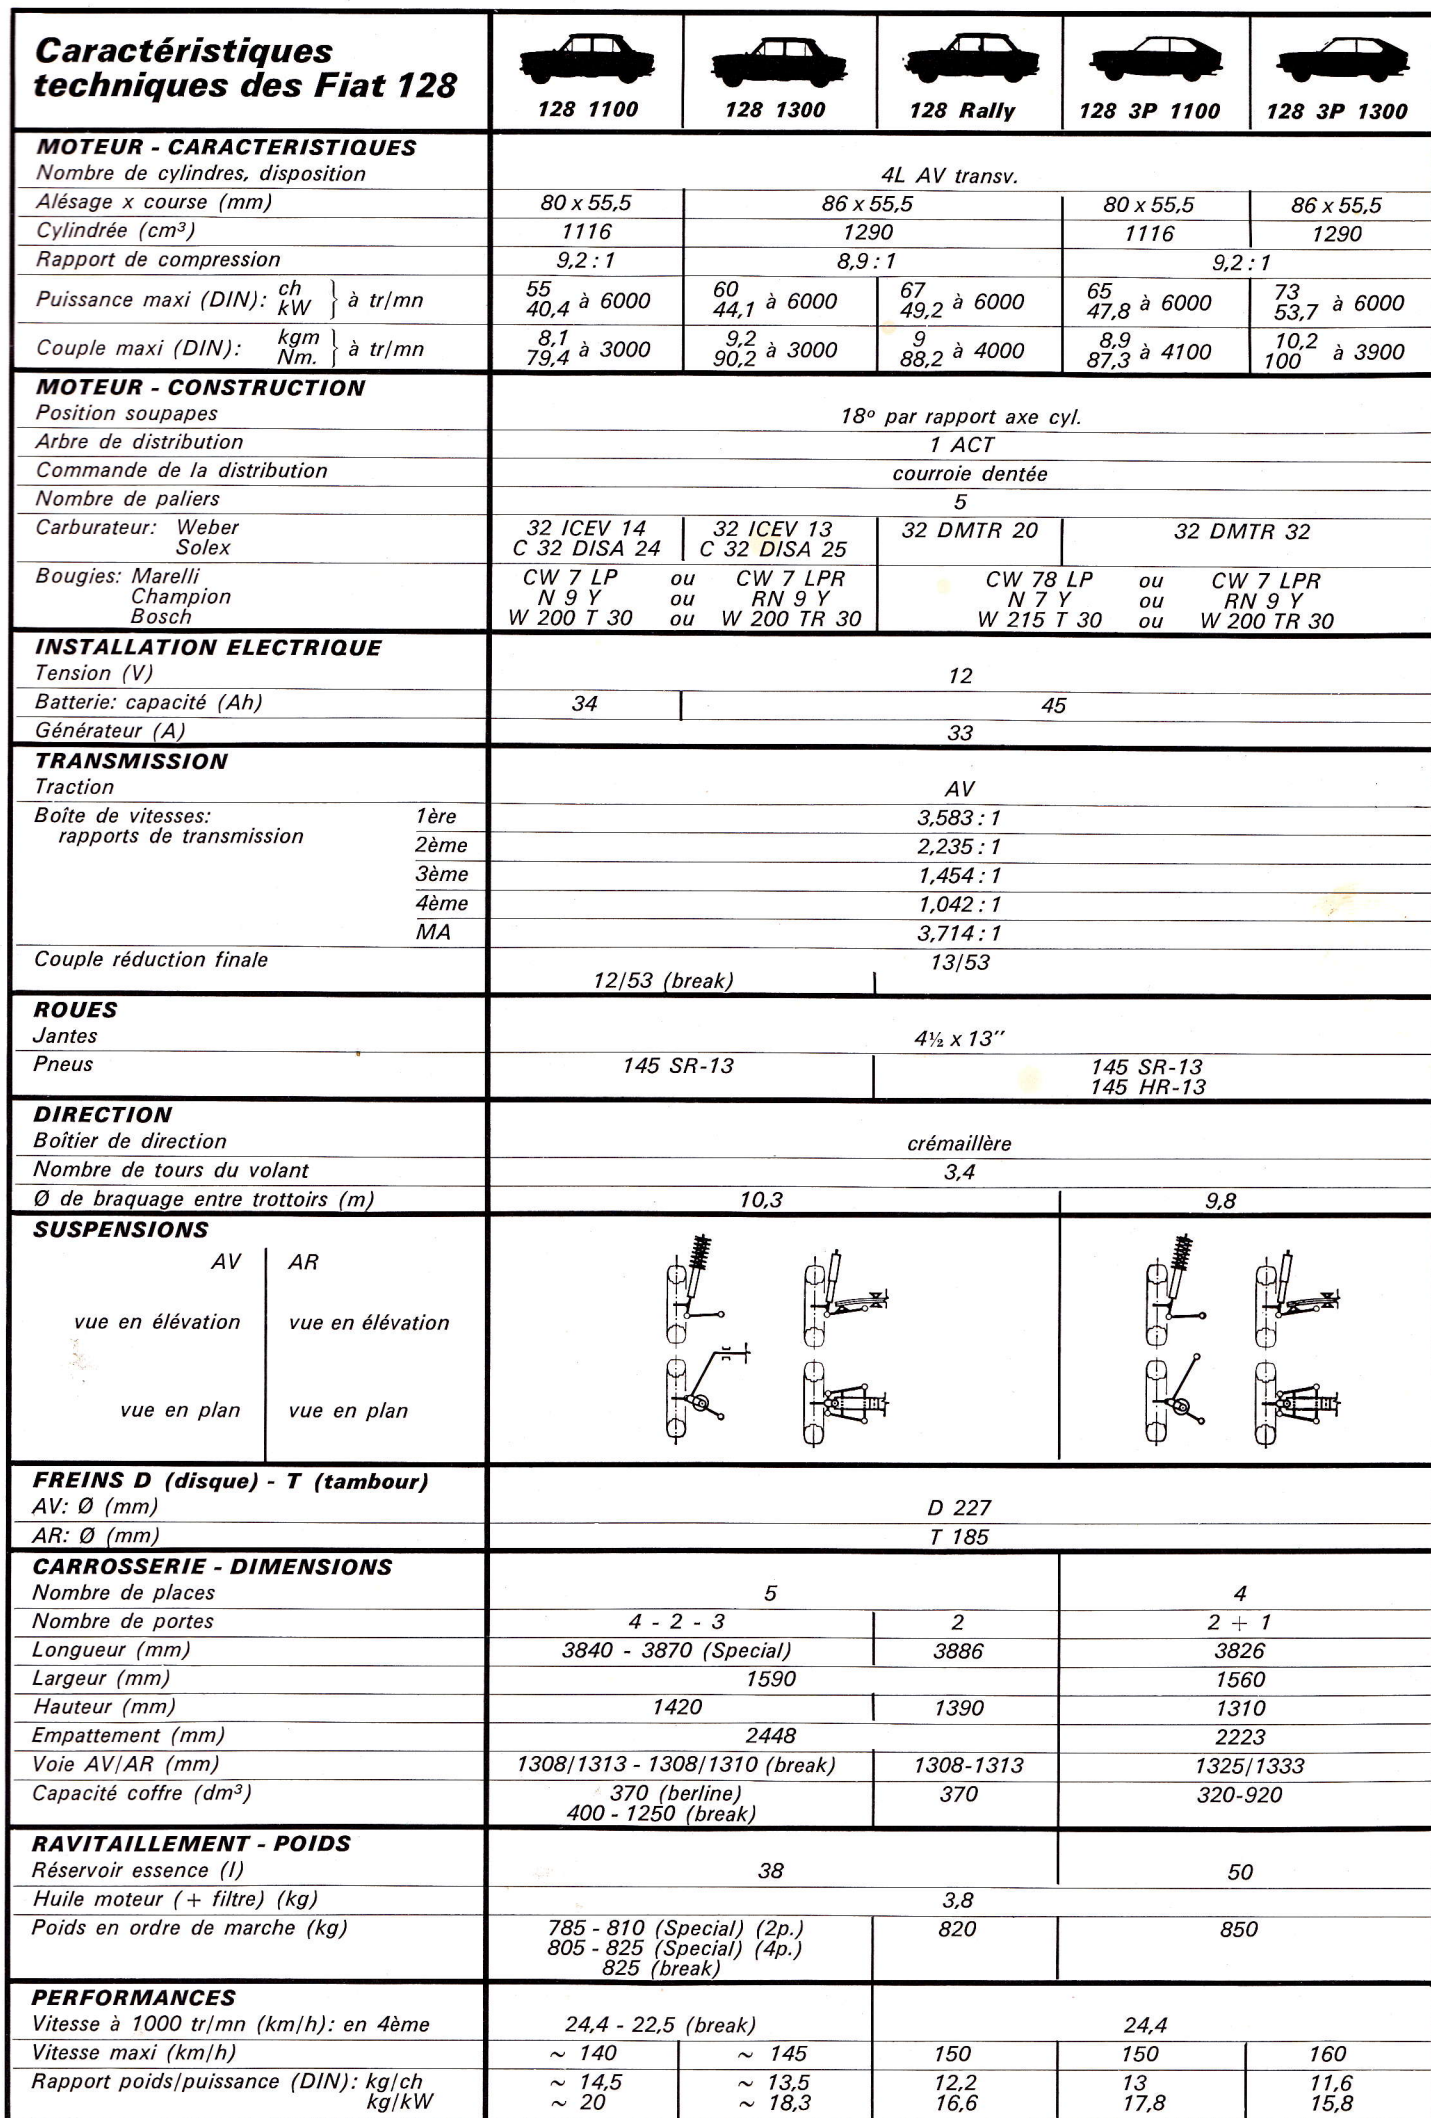 Caractéristiques
techniques des Fiat 128
128 1100 128 1300 128 Rally 128 3P 1100 128 3P 1300
MOTEUR - CARACTERISTIQUES
Nombre de cylindres, disposition 4L AV transv.
Alésage x course (mm) 80 x 55,5 86 x 55,5 80 x 55,5 86 x 55,5
Cylindrée (cm³) 1116 1290 1116 1290
Rapport de compression 9,2 : 1 8,9 : 1 9,2 : 1
Puissance maxi (DIN): ch 55 60 67 65 73
kW } à tr/mn 40,4 à 6000 44,1 à 6000 49,2 à 6000 47,8 à 6000 53,7 à 6000
Couple maxi (DIN): kgm 8,1 9,2 9 8,9 10,2
Nm. } à tr/mn 79,4 à 3000 90,2 à 3000 88,2 à 4000 87,3 à 4100 100 à 3900
MOTEUR - CONSTRUCTION
Position soupapes 18º par rapport axe cyl.
Arbre de distribution 1 ACT
Commande de la distribution courroie dentée
Nombre de paliers 5
Carburateur: Weber 32 ICEV 14 32 ICEV 13 32 DMTR 20 32 DMTR 32
Solex C 32 DISA 24 C 32 DISA 25
Bougies: Marelli CW 7 LP ou CW 7 LPR CW 78 LP ou CW 7 LPR
Champion N 9 Y ou RN 9 Y N 7 Y ou RN 9 Y
Bosch W 200 T 30 ou W 200 TR 30 W 215 T 30 ou W 200 TR 30
INSTALLATION ELECTRIQUE
Tension (V) 12
Batterie: capacité (Ah) 34 45
Générateur (A) 33
TRANSMISSION
Traction AV
Boîte de vitesses: 1ère 3,583 : 1
rapports de transmission 2ème 2,235 : 1
3ème 1,454 : 1
4ème 1,042 : 1
MA 3,714 : 1
Couple réduction finale 13/53
12/53 (break)
ROUES
Jantes 4½ x 13''
Pneus 145 SR-13 145 SR-13
145 HR-13
DIRECTION
Boîtier de direction crémaillère
Nombre de tours du volant 3,4
Ø de braquage entre trottoirs (m) 10,3 9,8
SUSPENSIONS
AV AR
vue en élévation vue en élévation
vue en plan vue en plan
FREINS D (disque) - T (tambour)
AV: Ø (mm) D 227
AR: Ø (mm) T 185
CARROSSERIE - DIMENSIONS
Nombre de places 5 4
Nombre de portes 4 - 2 - 3 2 2 + 1
Longueur (mm) 3840 - 3870 (Special) 3886 3826
Largeur (mm) 1590 1560
Hauteur (mm) 1420 1390 1310
Empattement (mm) 2448 2223
Voie AV/AR (mm) 1308/1313 - 1308/1310 (break) 1308-1313 1325/1333
Capacité coffre (dm³) 370 (berline) 370 320-920
400 - 1250 (break)
RAVITAILLEMENT - POIDS
Réservoir essence (l) 38 50
Huile moteur (+ filtre) (kg) 3,8
Poids en ordre de marche (kg) 785 - 810 (Special) (2p.) 820 850
805 - 825 (Special) (4p.)
825 (break)
PERFORMANCES
Vitesse à 1000 tr/mn (km/h): en 4ème 24,4 - 22,5 (break) 24,4
Vitesse maxi (km/h) ~ 140 ~ 145 150 150 160
Rapport poids/puissance (DIN): kg/ch ~ 14,5 ~ 13,5 12,2 13 11,6
kg/kW ~ 20 ~ 18,3 16,6 17,8 15,8